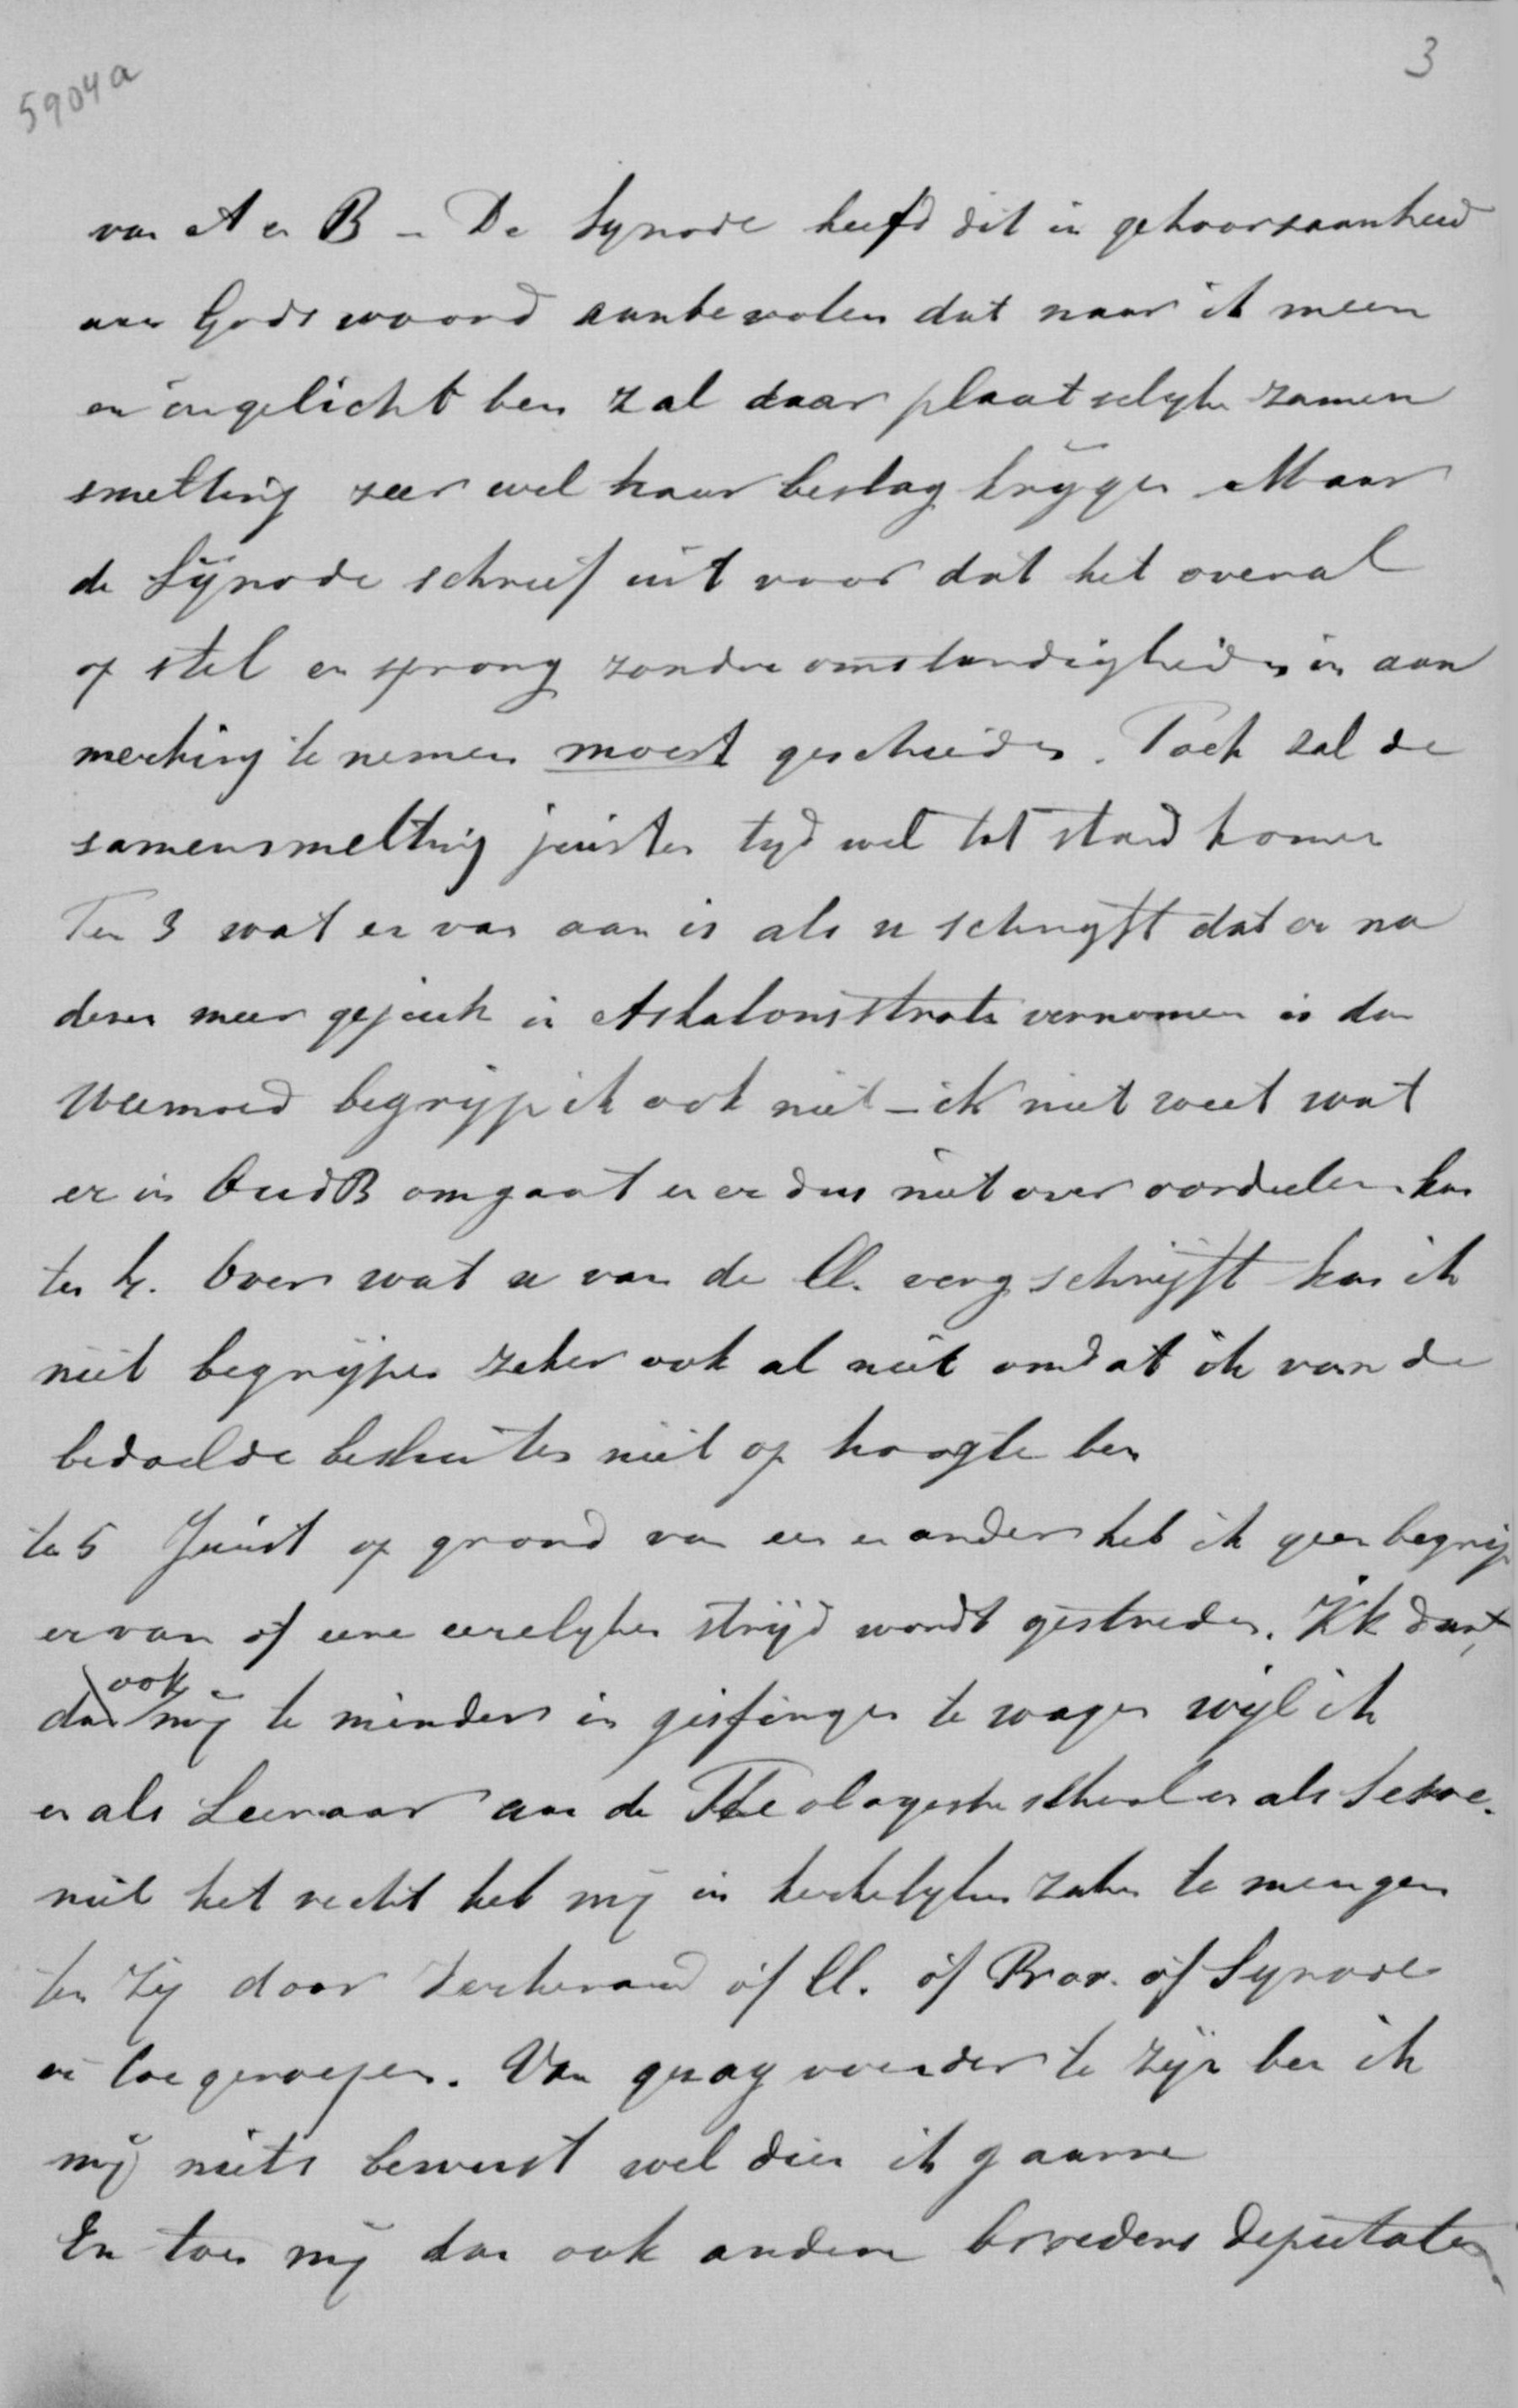 3
5904a
van A en B - De Synode heefd dit in gehoorzaamheid
aan Gods woord aanbevolen dat naar ik meen
en ingelicht ben zal daar plaatselyke zamen
smelting zeer wel haar beslag krijgen Maar
de Synode schreef niet voor dat het overal
op stel en sprong zonder omstandigheden in aan
merking te nemen moest geschieden. Toch zal de
samensmelting juister tyd wel tot stand komen
Ten 3 wat er van aan is als u schryft dat er na
dezen meer gejuich in Askalons straten vernomen is dan
weemoed begrijp ik ook niet - ik niet weet wat
er in Oud B omgaat en er dus niet over oordeelen kan
ten 4. Over wat u van de Cl. verg schrijft kan ik
niet begrijpen zeker ook al niet omdat ik van de
bedoelde besluiten niet op hoogte ben
ten 5 Juist op grond van een en ander heb ik geen begrip
ervan of eene eerelyken strijd wordt gestreden. Ik durf
dan ook mij te minder in gissingen te wagen wijl ik
en als Leeraar aan de Theologische School en als
niet het recht heb mij in kerkelyken zaken te mengen
ten zij door Kerkenraad of Cl. of Prov. of Synode
er toe geroepen. Van gezag voerder te zijn ben ik
mij niets bewust wel dien ik gaarne
En toen mij dan ook andere broeders deputaten